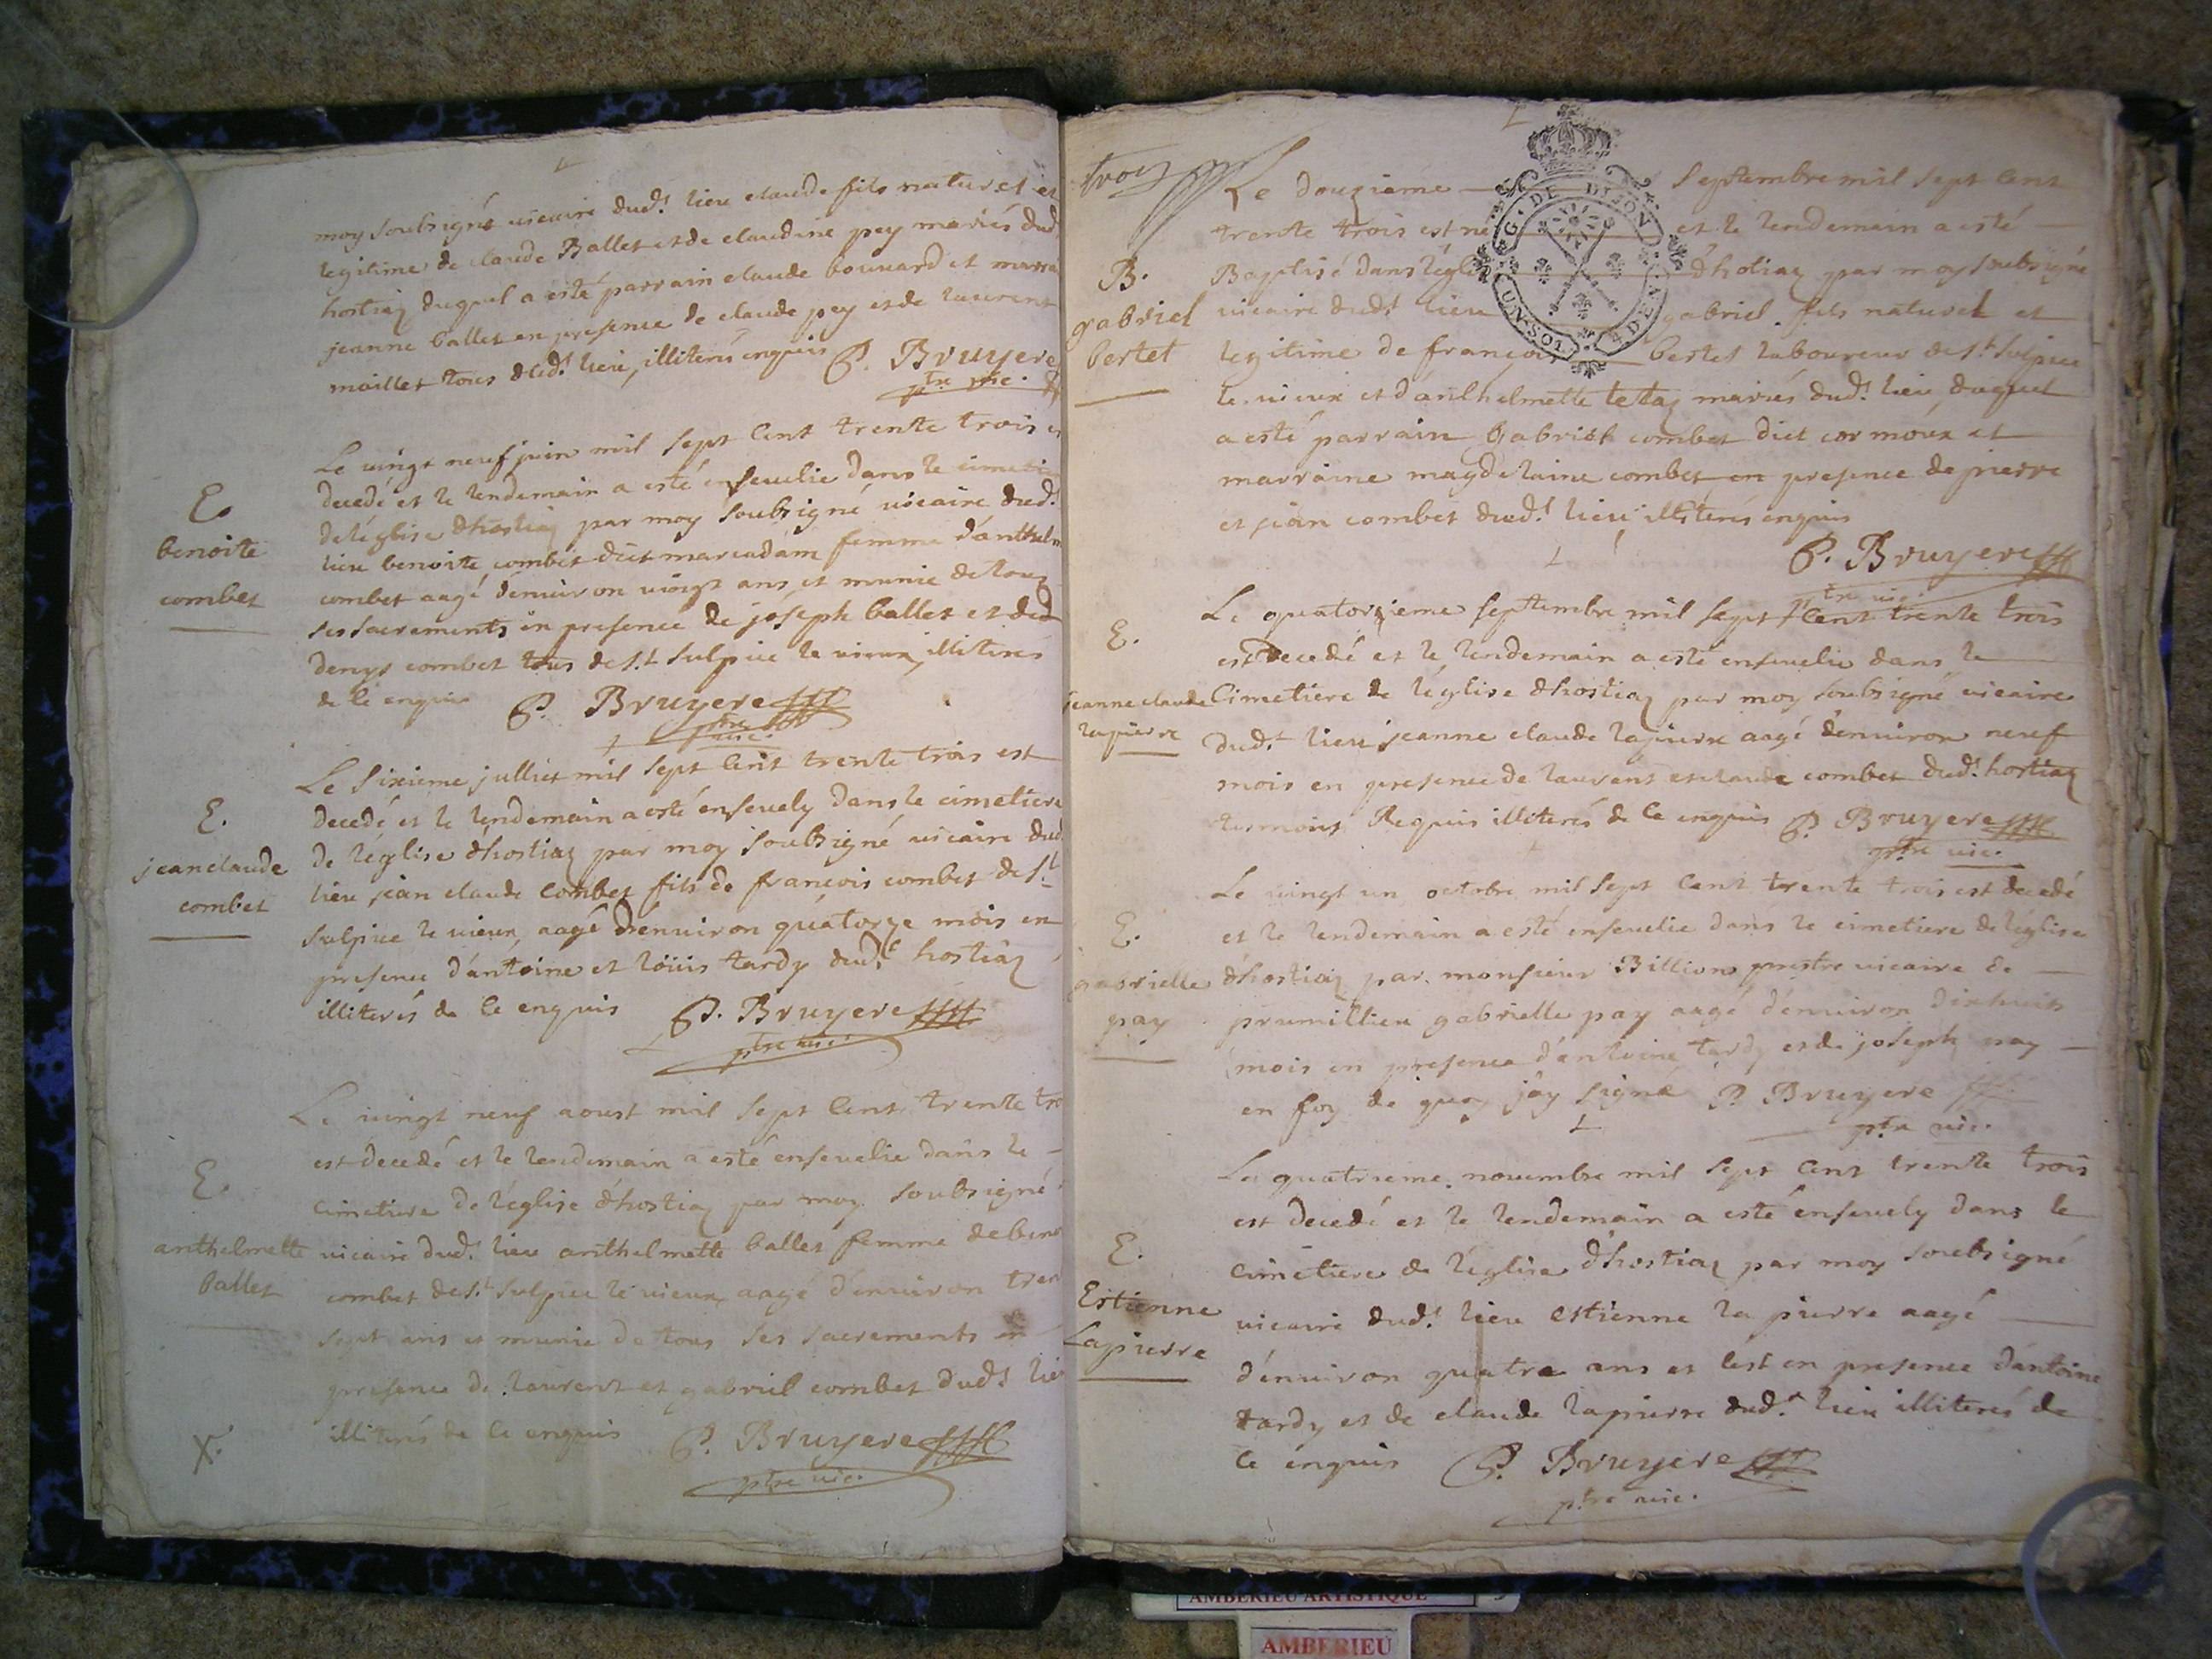 moy soubsigné vicaire dud.t lieu claude fils naturel et
legitime de claude Ballet et de claudine pey mariés dud
hostiaz duquel a esté parrain claude bonnard et marra
jeanne ballet en presence de claude pey et de laurent
maillet tous dud.t lieu, illiterés enquis P. Bruyere
ptre vic.
Le vingt neuf juin mil sept cent trente trois es
decedé et le lendemain a esté ensevelie dans le cimetie
de l'église d'hostiaz par moy soubsigné vicaire dud.t
lieu benoite combet dict marcadam femme d'anthelm
combet aagé d'environ vingt ans et munie de tous
ses sacrements en presence de joseph ballet et de
denys combet tous de s.t sulpice le vieux, illiterés
de ce enquis P. Bruyere
ptre vic.
E.
benoite
combet
Le sixieme julliet mil sept cent trente trois est
decedé et le lendemain a esté ensevely dans le cimetiere
de l'église d'hostiaz par moy soubsigné vicaire dud
lieu jean claude combet fils de francois combet de s.t
sulpice le vieux, aagé d'environ quatorze mois en
presence d'antoine et löüis tardy dud.t hostiaz
illiterés de ce enquis P. Bruyere
ptre vic.
E.
jean claude
combet
Le vingt neuf aoust mil sept cent trente tro
est decedé et le lendemain a esté ensevelie dans le
cimetiere de l'église d'hostiaz par moy soubsigné
vicaire dud.t lieu anthelmette ballet femme de beno
combet de s.t sulpice le vieux, aagé d'environ tren
sept ans et munie de tous ses sacrements en
presence de laurent et gabriel combet dud.t lieu
illiterés de ce enquis P. Bruyere
ptre vic.
E.
anthelmette
ballet
X.
trois
Le douzieme septembre mil sept cent
trente trois est né et le lendemain a esté
Baptisé dans l'église d'hotiaz par moy soubsigné
vicaire dud.t lieu gabriel fils naturel et
legitime de françois bertet laboureur de s.t sulpice
le vieux et d'anthelmette tetaz mariés dud.t lieu, duquel
a esté parrain Gabriel combet dict cormoux et
marraine magdelaine combet en presence de pierre
et jean combet dud.t lieu illiteres enquis
P. Bruyere
ptre vic.
B.
gabriel
bertet
G. DE DIJON
UN. SOL
Le quatorzieme septembre mil sept cent trente trois
est decedé et le lendemain a esté ensevelie dans le
Cimetiere de l'église d'hostiaz par moy soubsigné vicaire
dud.t lieu jeanne claude lapierre aagé d'environ neuf
mois en presence de laurent et claude combet dud.t hostiaz
tesmoins Requis illiterés de ce enquis P. Bruyere
ptre vic.
E.
jeanne claude
lapierre
Le vingt un octobre mil sept cent trente trois est decedé
et le lendemain a esté ensevelie dans le cimetiere de l'église
d'hostiaz par monsieur Billion prestre vicaire de
prumillieu gabrielle pay aagé d'environ dixhuit
mois en presence d'antoine tardy et de joseph pay
en foy de quoy j'ay signé P. Bruyere
ptre vic.
E.
gabrielle
pay
Le quatrieme novembre mil sept cent trente trois
est decedé et le lendemain a esté ensevely dans le
cimetiere de l'église d'hostiaz par moy soubsigné
vicaire dud.t lieu estienne la pierre aagé
d'environ quatre ans et c'est en presence d'antoine
tardy et de claude lapierre dud.t lieu illiterés de
ce enquis P. Bruyere
ptre vic.
E.
Estienne
Lapierre
AMBERIEU ARTISTIQUE
AMBERIEU